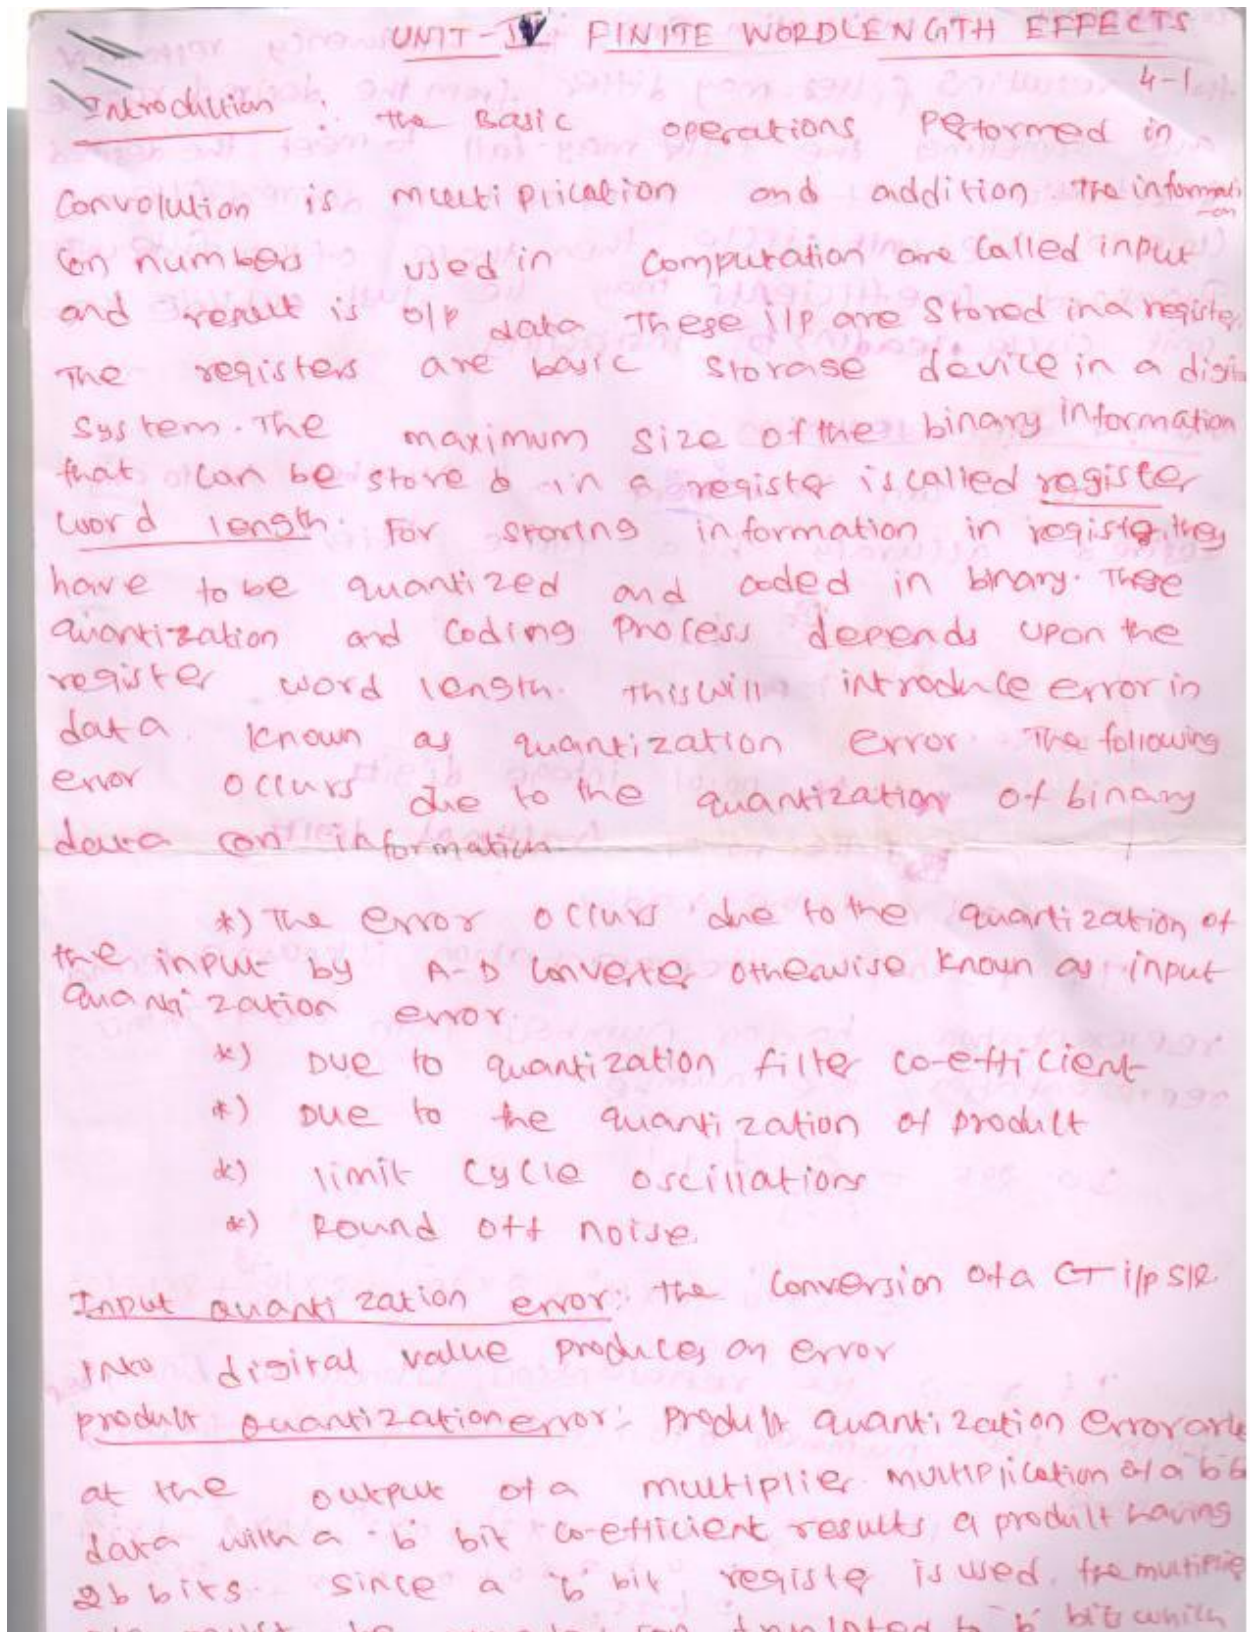 UNIT-IV FINITE WORDLENGTH EFFECTS
4-1
Introduction : the Basic operations performed in
Convolution is multiplication and addition. The informati
-on
(or) numbers used in computation are called input
and result is o/p data These i/p are stored in a register.
The registers are basic storage device in a digital
System. The maximum size of the binary information
that can be stored in a register is called register
word length. For storing information in register, they
have to be quantized and coded in binary. These
quantization and coding process depends upon the
register word length. This will introduce error in
data. known as quantization error. The following
error occurs due to the quantization of binary
data (or) information.
*) The error occurs due to the quantization of
the input by A-D converter otherwise known as input
quantization error.
*) Due to quantization filter co-efficient
*) Due to the quantization of product
*) limit cycle oscillations
*) Round off noise.
Input quantization error: the conversion of a CT i/p
into digital value produces an error
product quantization error: Product quantization error
at the output of a multiplier. multiplication of a b
data with a 'b' bit co-efficient results a product having
2b bits. Since a 'b' bit register is used, the multiplie
to 'b' bits which